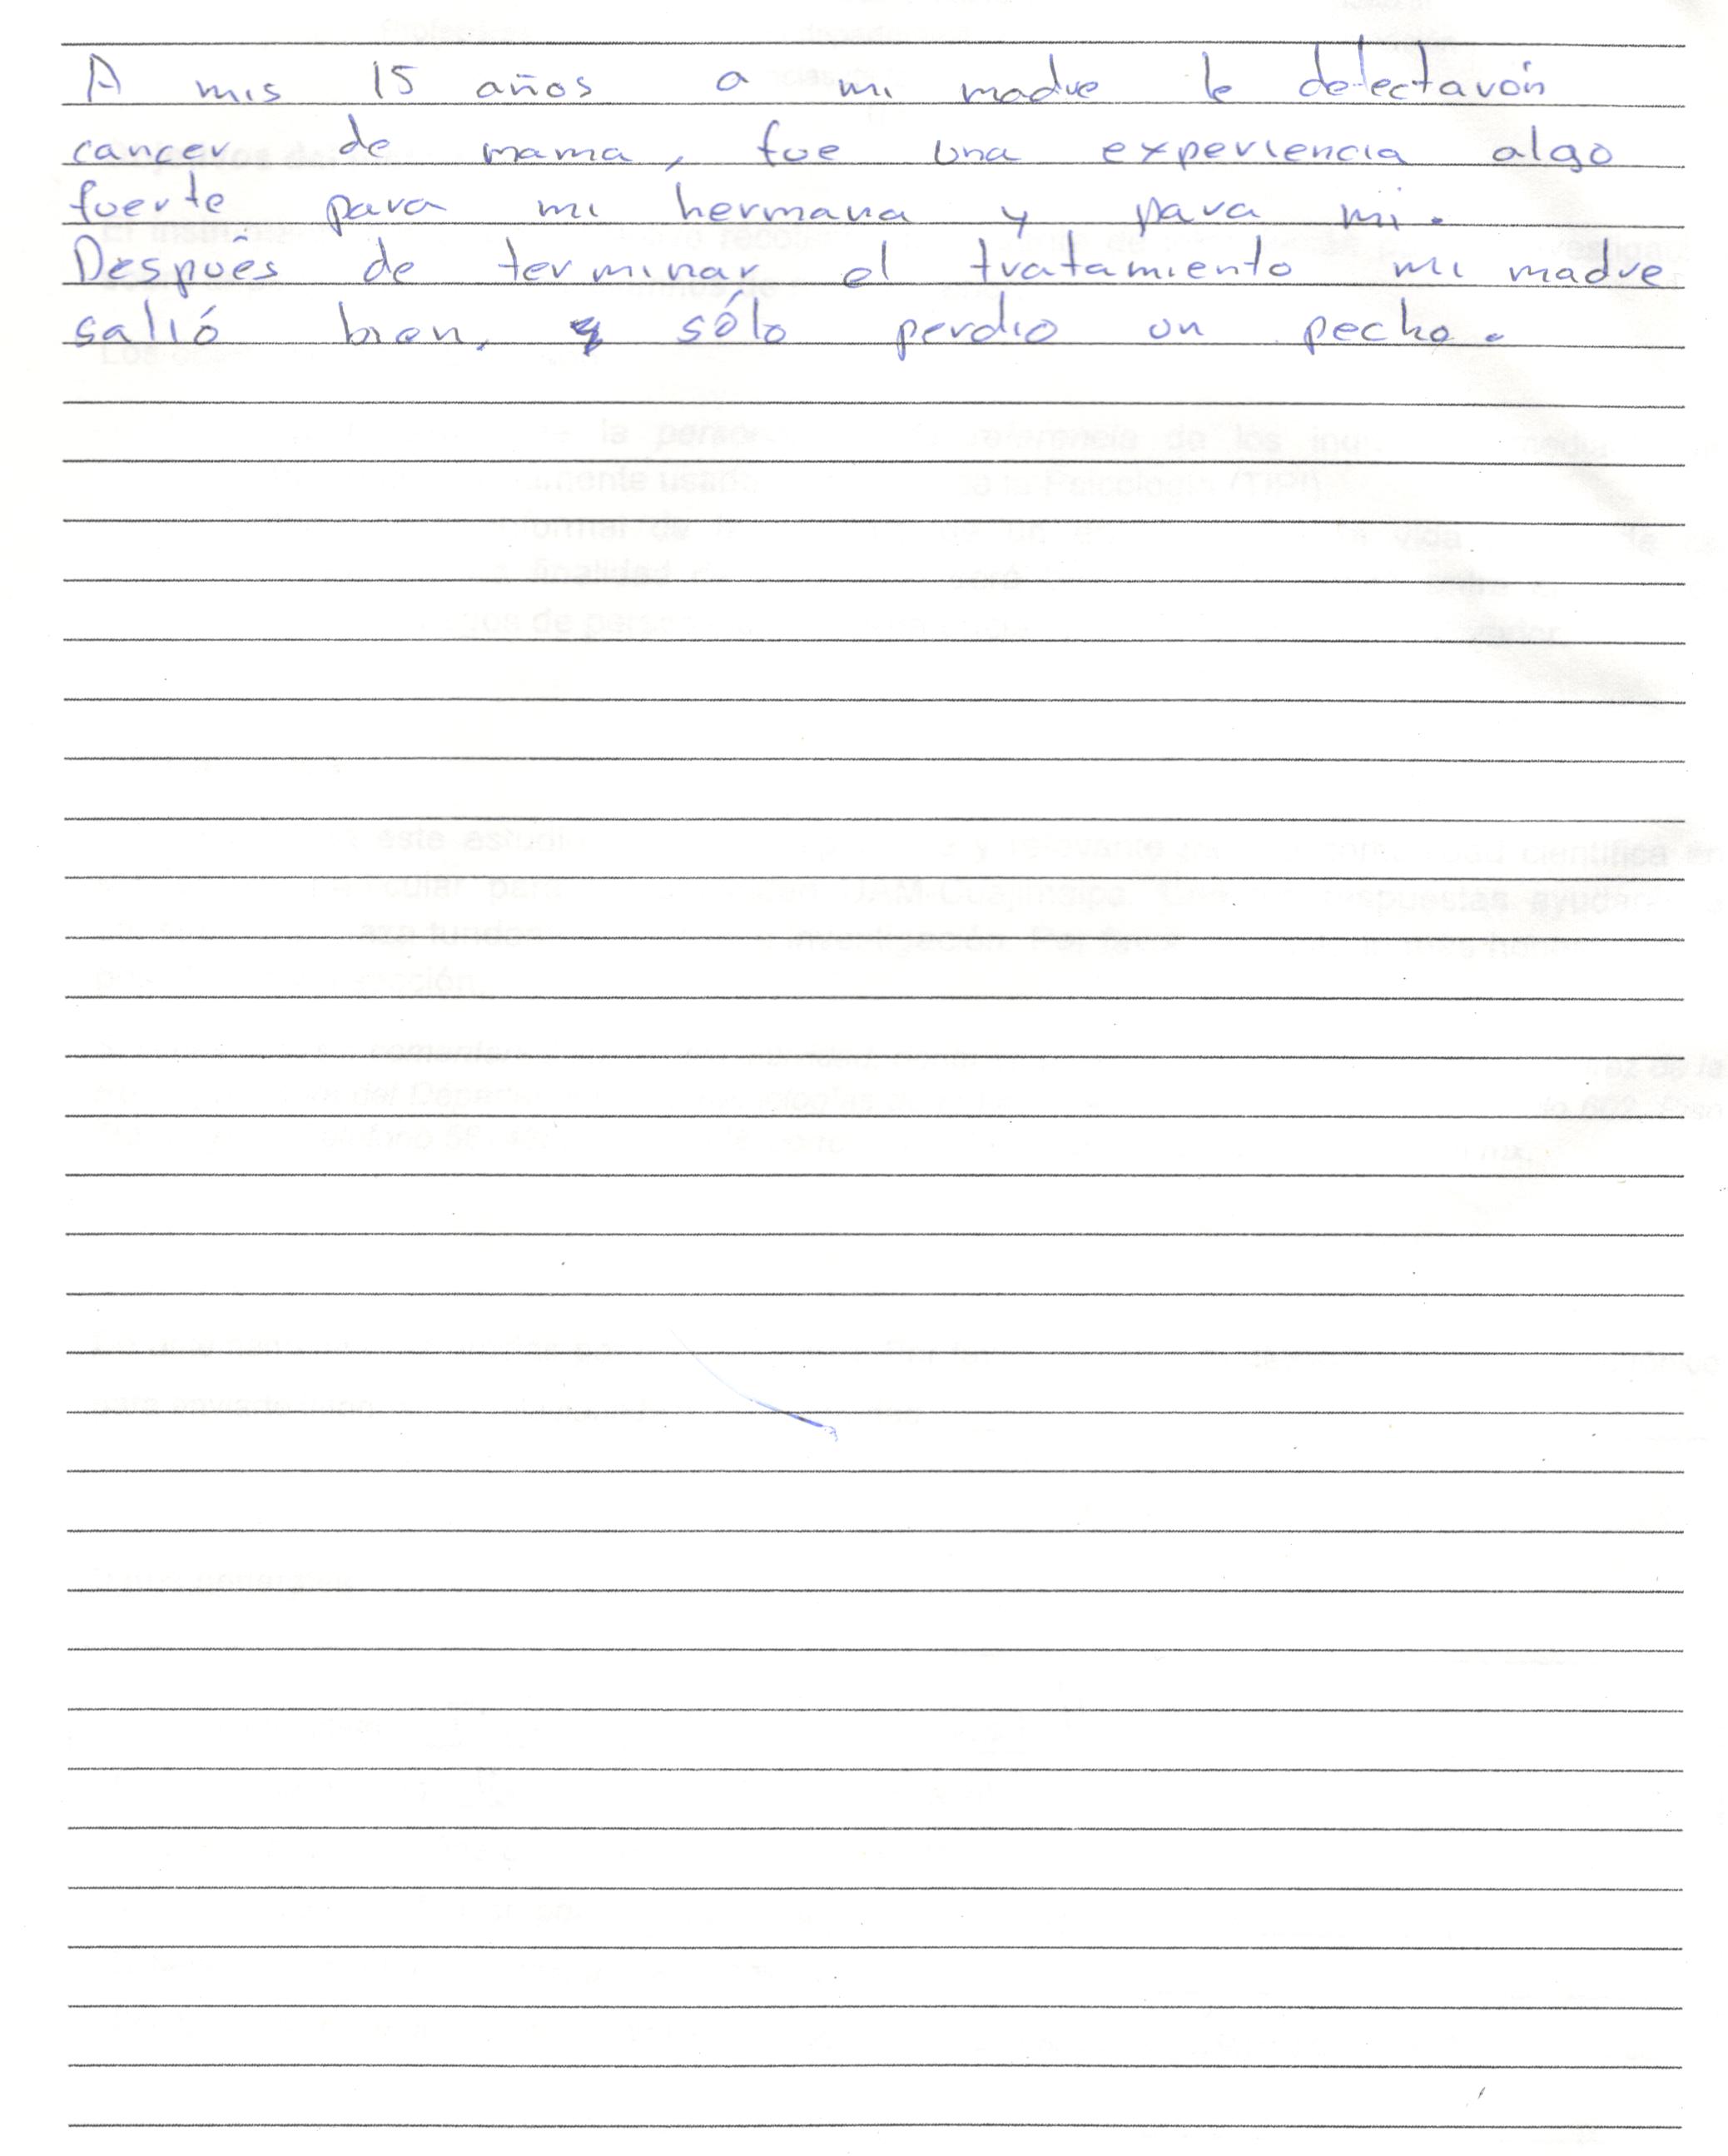 A mis 15 años a mi madre le detectarón
cancer de mama, fue una experiencia algo
fuerte para mi hermana y para mi.
Después de terminar el tratamiento mi madre
salió bien, y sólo perdio un pecho.